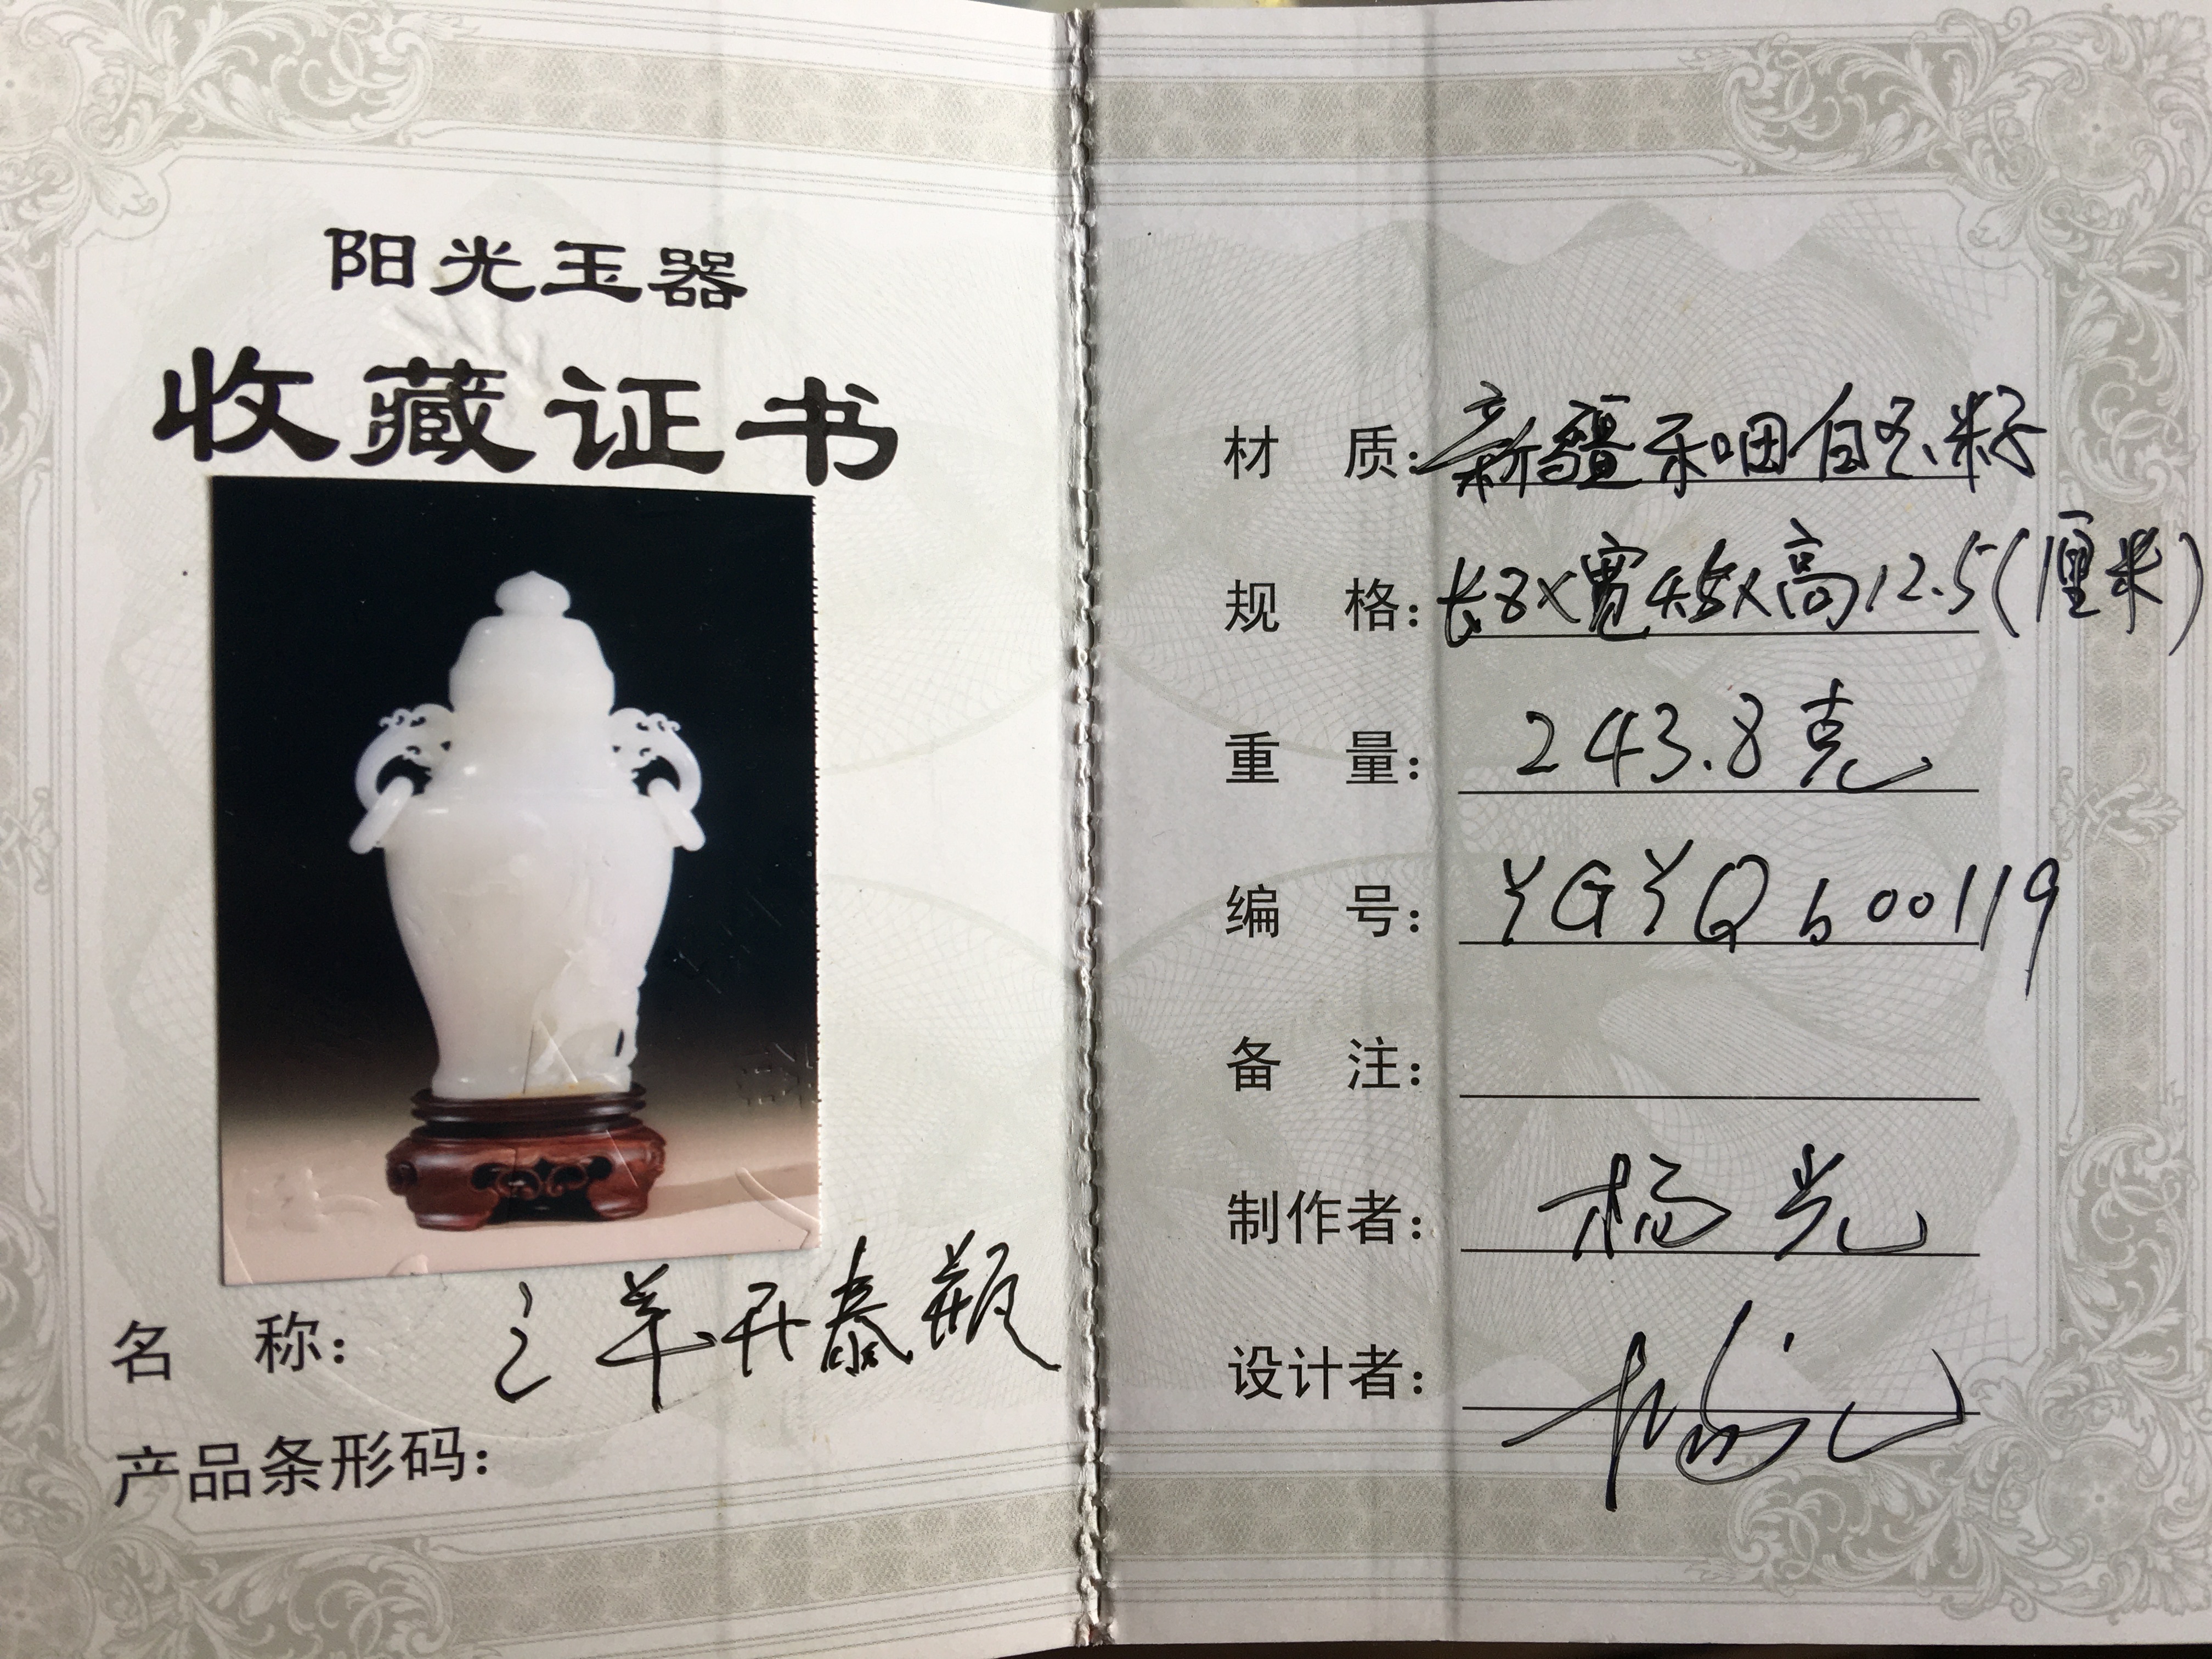 阳光玉器
收藏证书
名 称：三羊开泰瓶
产品条形码：
材 质：新疆和田白玉籽
规 格：长8×宽4.5×高12.5(厘米)
重 量：243.8克
编 号：YGYQ600119
备 注：
制作者：杨光
设计者：杨光